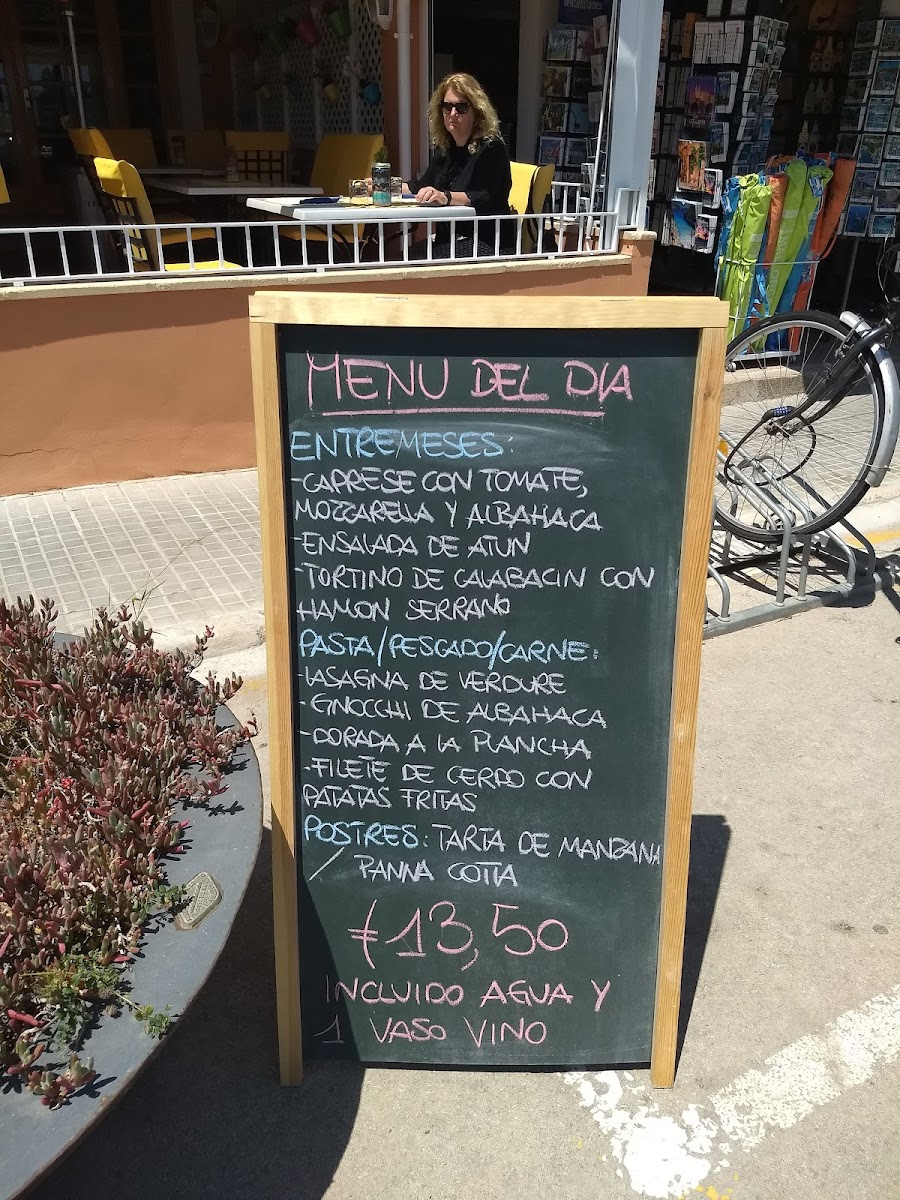 MENU DEL DIA
ENTREMESES:
-CAPRESE CON TOMATE,
MOZZARELLA Y ALBAHACA
-ENSALADA DE ATUN
-TORTINO DE CALABACIN CON
HAMON SERRANO
PASTA/PESCADO/CARNE:
-LASAGNA DE VERDURE
-GNOCCHI DE ALBAHACA
-DORADA A LA PLANCHA
-FILETE DE CERDO CON
PATATAS FRITAS
POSTRES: TARTA DE MANZANA
/ PANNA COTTA
€13,50
INCLUIDO AGUA Y
1 VASO VINO